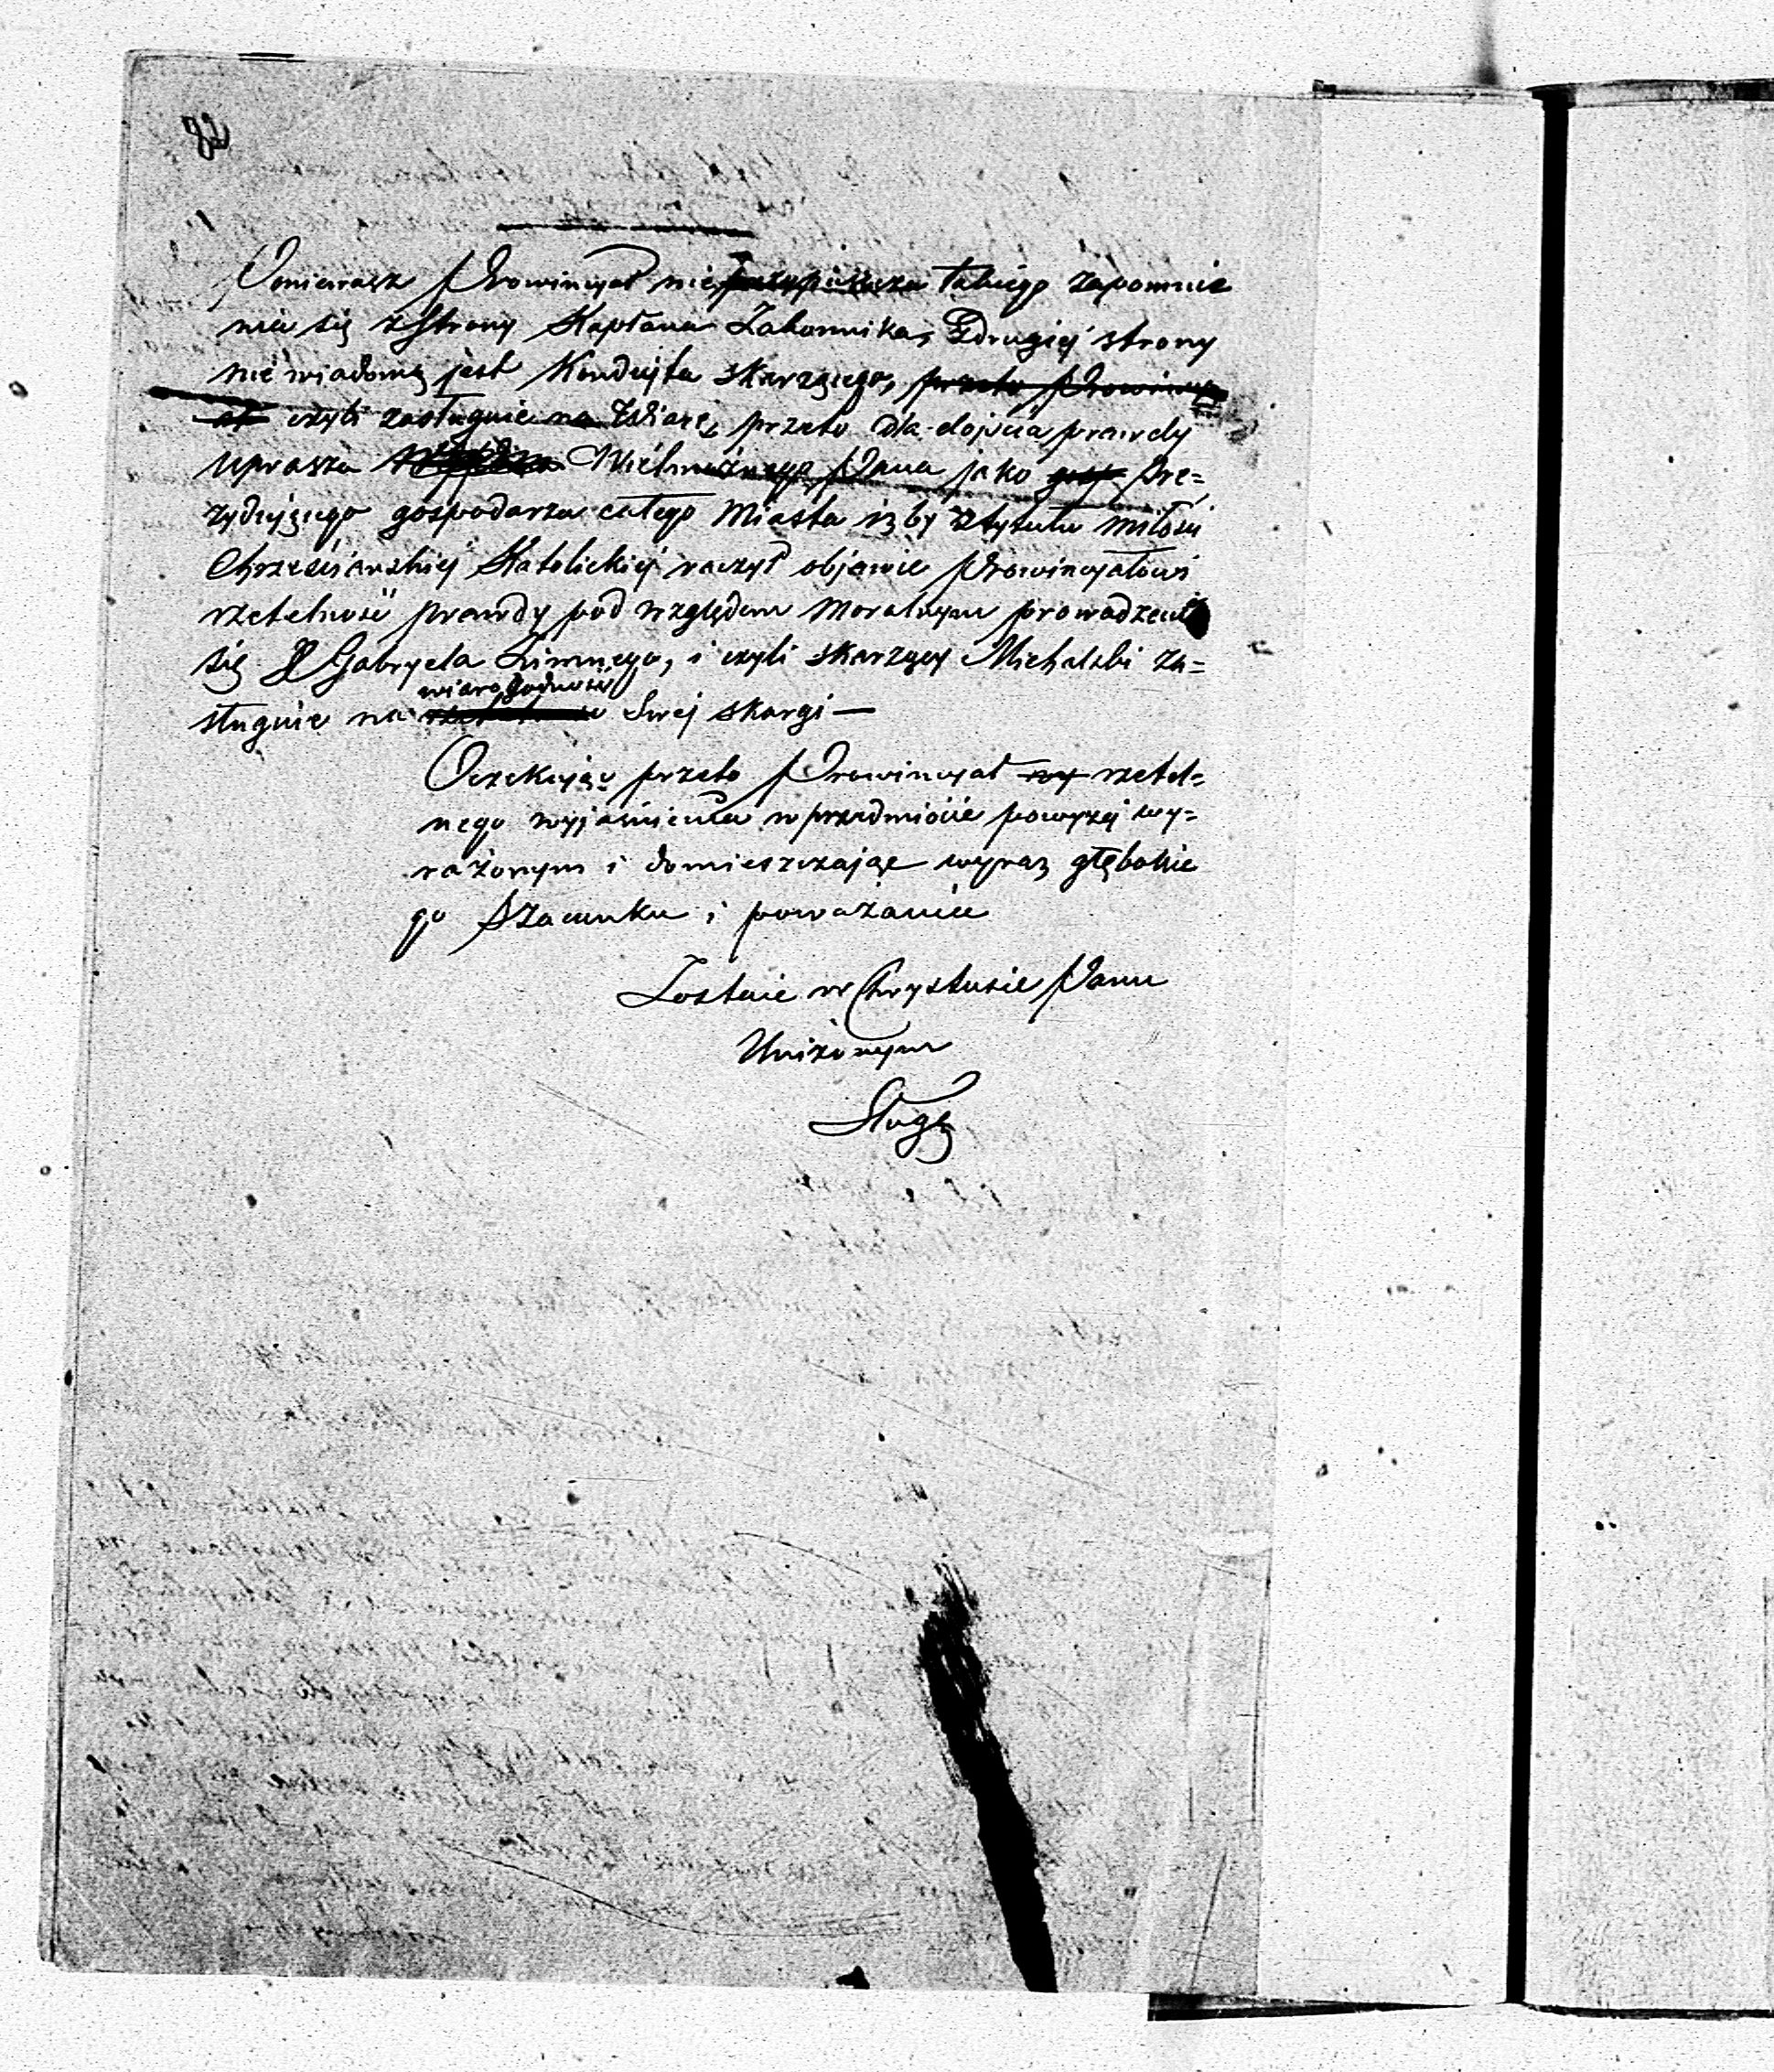 82
Poniewasz Prowincyał nie przypuszcza takiego zapomnie
nia się z strony Kapłana Zakonnika, Zdrugiej strony
nie wiadomą jest Kondujta skarzącego, przeto Prowincy
ał czyli zasługuie na Wiarę, przeto dla dojścia prawdy
uprasza Wielmożnego Pana jako Pre=
zydującego gospodarza całego Miasta iżby z tytułu miłości
Chrześciańskiej Katolickiej raczył objawić Prowincyałowi
rzetelność prawdy pod względem moralnym prowadzenia
się X Gabryela Zimnego, i czyli skarzący Michalski za=
wiarogodność
sługuie na Swej skargi —
Oczekując przeto Prowincyał wy rzetel=
nego wyjaśnienia w przedmiocie powyzej wy=
rażonym i domieszczając wyraz głębokie
go Szacunku i poważania
Zostaie w Chrystusie Panu
Uniżonym
Sługą